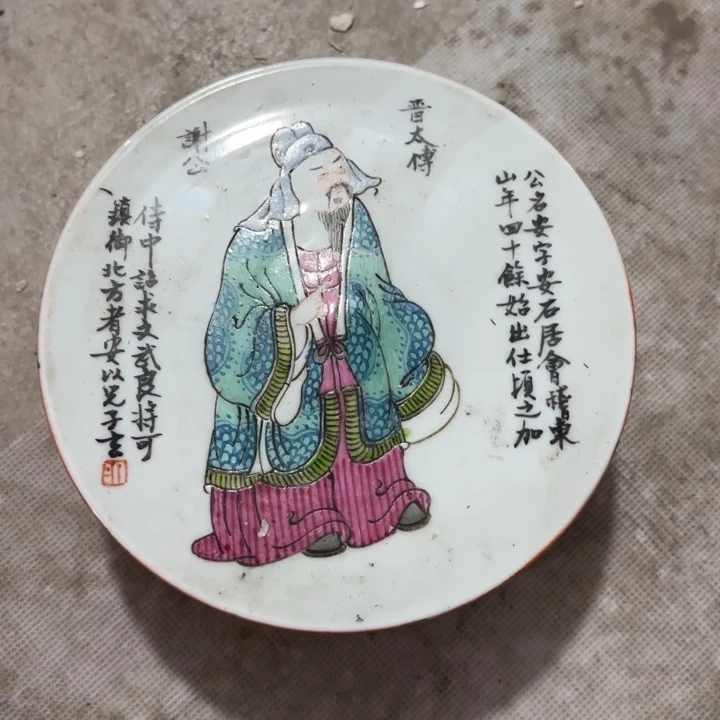 晋太傅
謝公
公名安字安石居會稽東
山年四十餘始出仕頃之加
侍中詔求文武良將可
鎮御北方者安以兄子玄